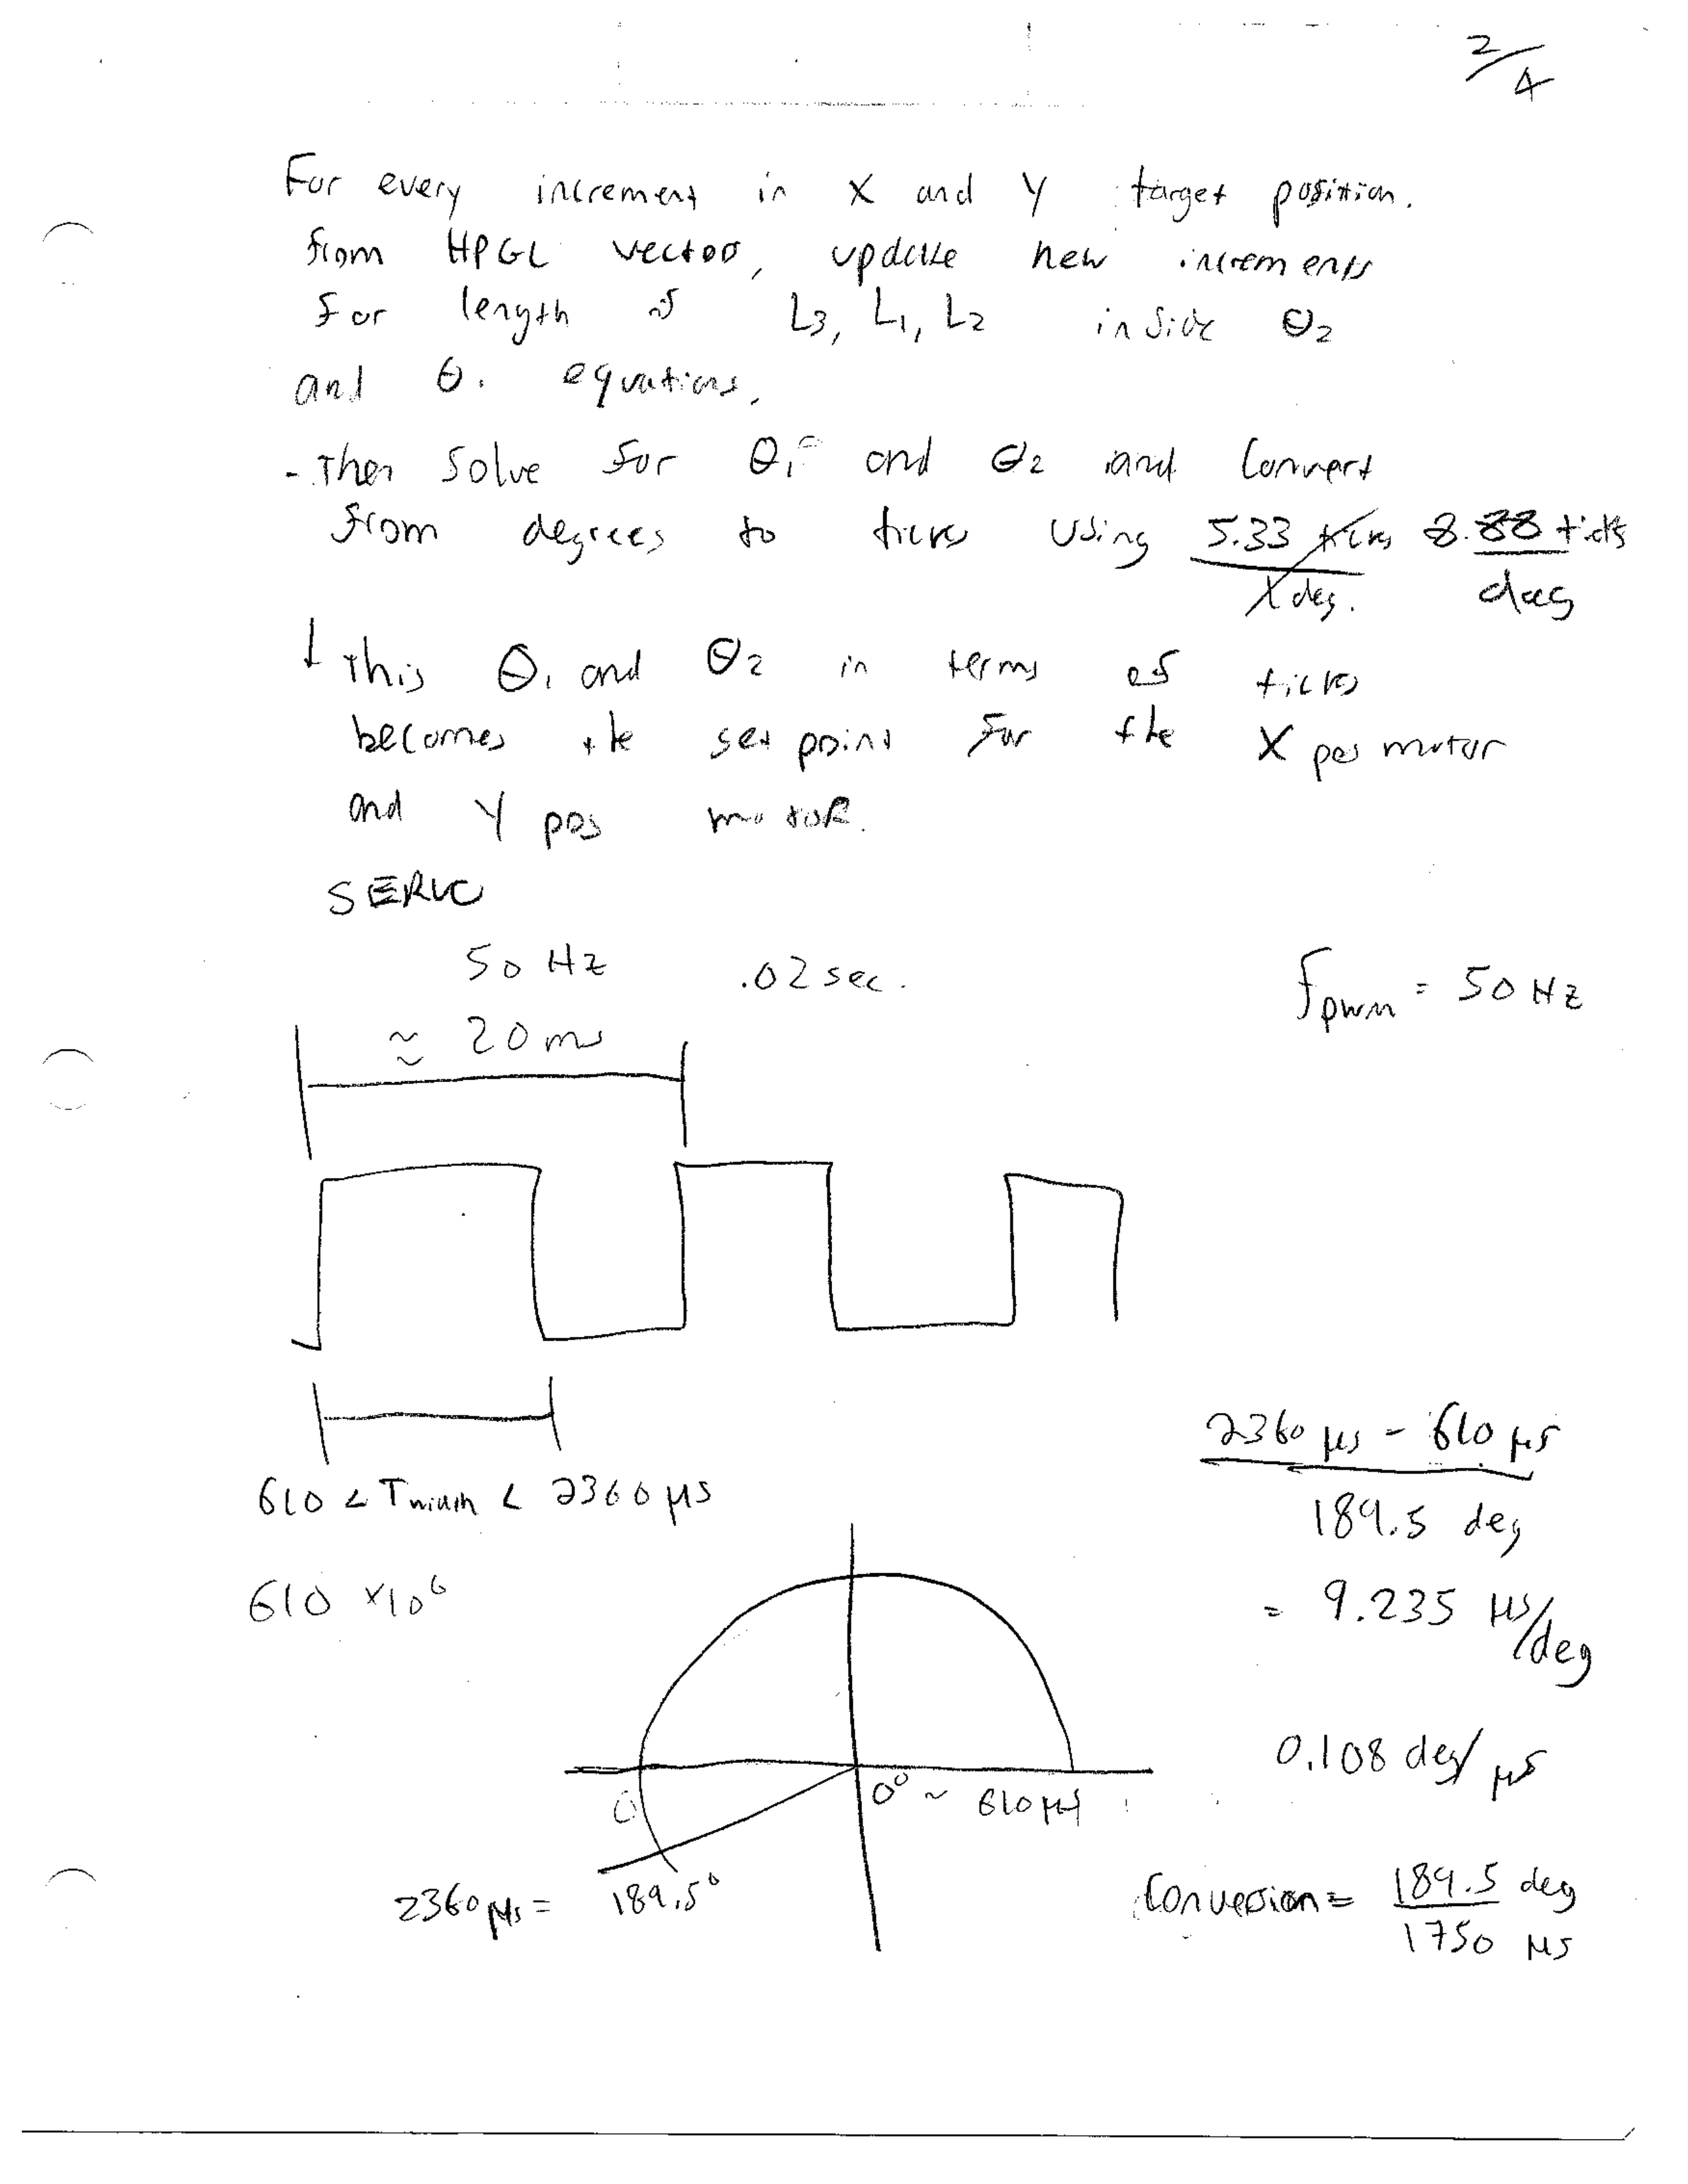 2/4
For every increment in X and Y target position.
from HPGL vector, update new increments
for length of L3, L1, L2 inside θ2
and θ1 equations.
- Then solve for θ1 and θ2 and convert
from degrees to ticks using 5.33 ticks / X deg. 8.88 ticks / deg
This θ1 and θ2 in terms of ticks
becomes the set point for the X pos motor
and Y pos motoR.
SERVO
50 Hz .02 sec.
fpwm = 50 Hz
≈ 20 ms
2360 μs - 610 μs
189.5 deg
610 < Twidth < 2360 μs
610 x10^6
= 9.235 μs/deg
0.108 deg/μs
0
0° ~ 610 μs
2360 μs = 189.5°
Conversion = 189.5 deg / 1750 μs